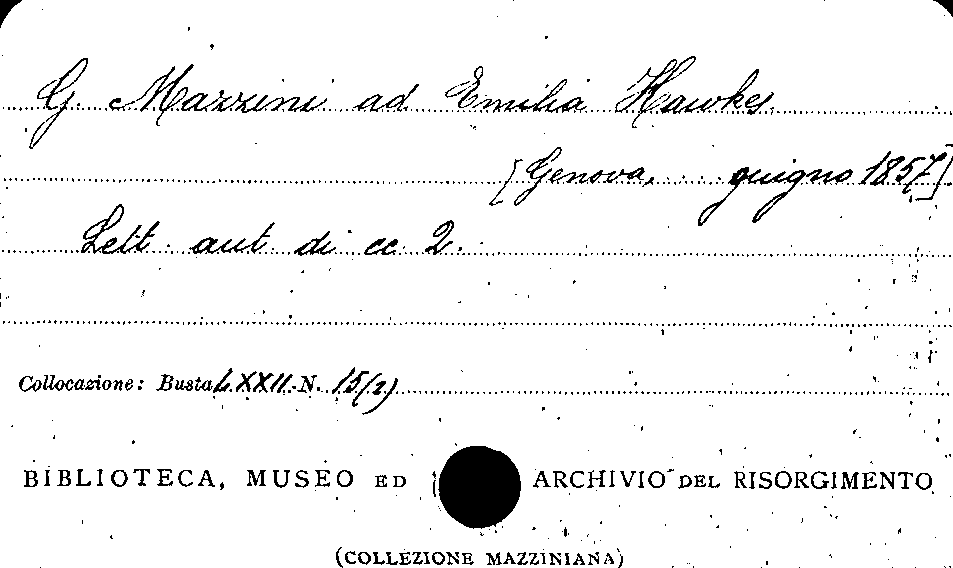 G. Mazzini ad Emilia Hawkes
[Genova, ... giugno 1857]
Lett. aut. di cc. 2.
Collocazione: Busta LXXII N. 15(2)
BIBLIOTECA, MUSEO ED ARCHIVIO DEL RISORGIMENTO
(COLLEZIONE MAZZINIANA)